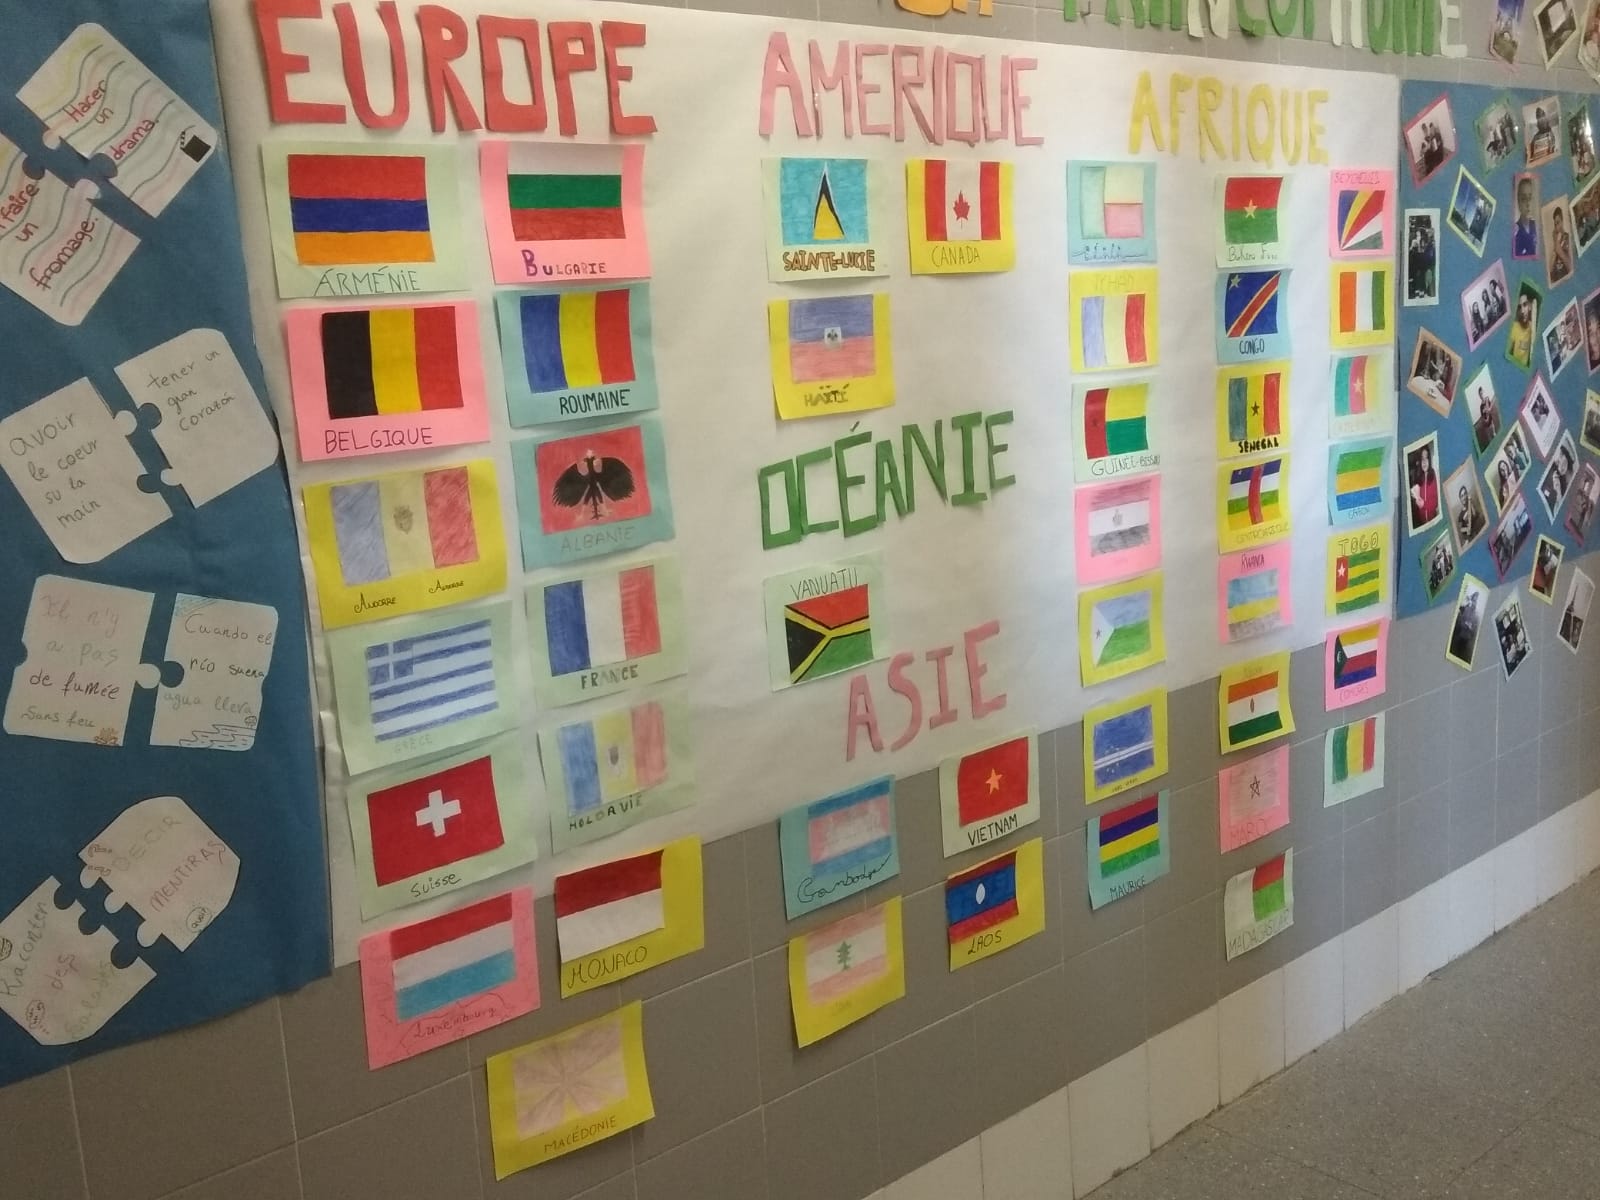 FRANCOPHONIE
EUROPE
AMERIQUE
AFRIQUE
OCÉANIE
ASIE
Hacer
un
drama.
faire
un
fromage.
avoir
le coeur
su la
main
tener un
gran
corazón
Il n'y
a pas
de fumée
Sans feu
Cuando el
río suena
agua lleva
DECIR
MENTIRAS
Raconter
des
salades
ARMÉNIE
BULGARIE
BELGIQUE
ROUMAINE
ANDORRE
ALBANIE
GRÈCE
FRANCE
Suisse
MOLDAVIE
Luxembourg
MONACO
MACÉDONIE
SAINTE-LUCIE
CANADA
HAÏTÍ
VANUATU
Cambodge
VIETNAM
LAOS
Bénin
TCHAD
GUINÉE-BISSAU
MAURICE
Burkina Faso
CONGO
SENEGAL
CENTRAFRIQUE
RWANDA
MAROC
MADAGASCAR
SEYCHELLES
CAMEROUN
GABON
TOGO
COMORES